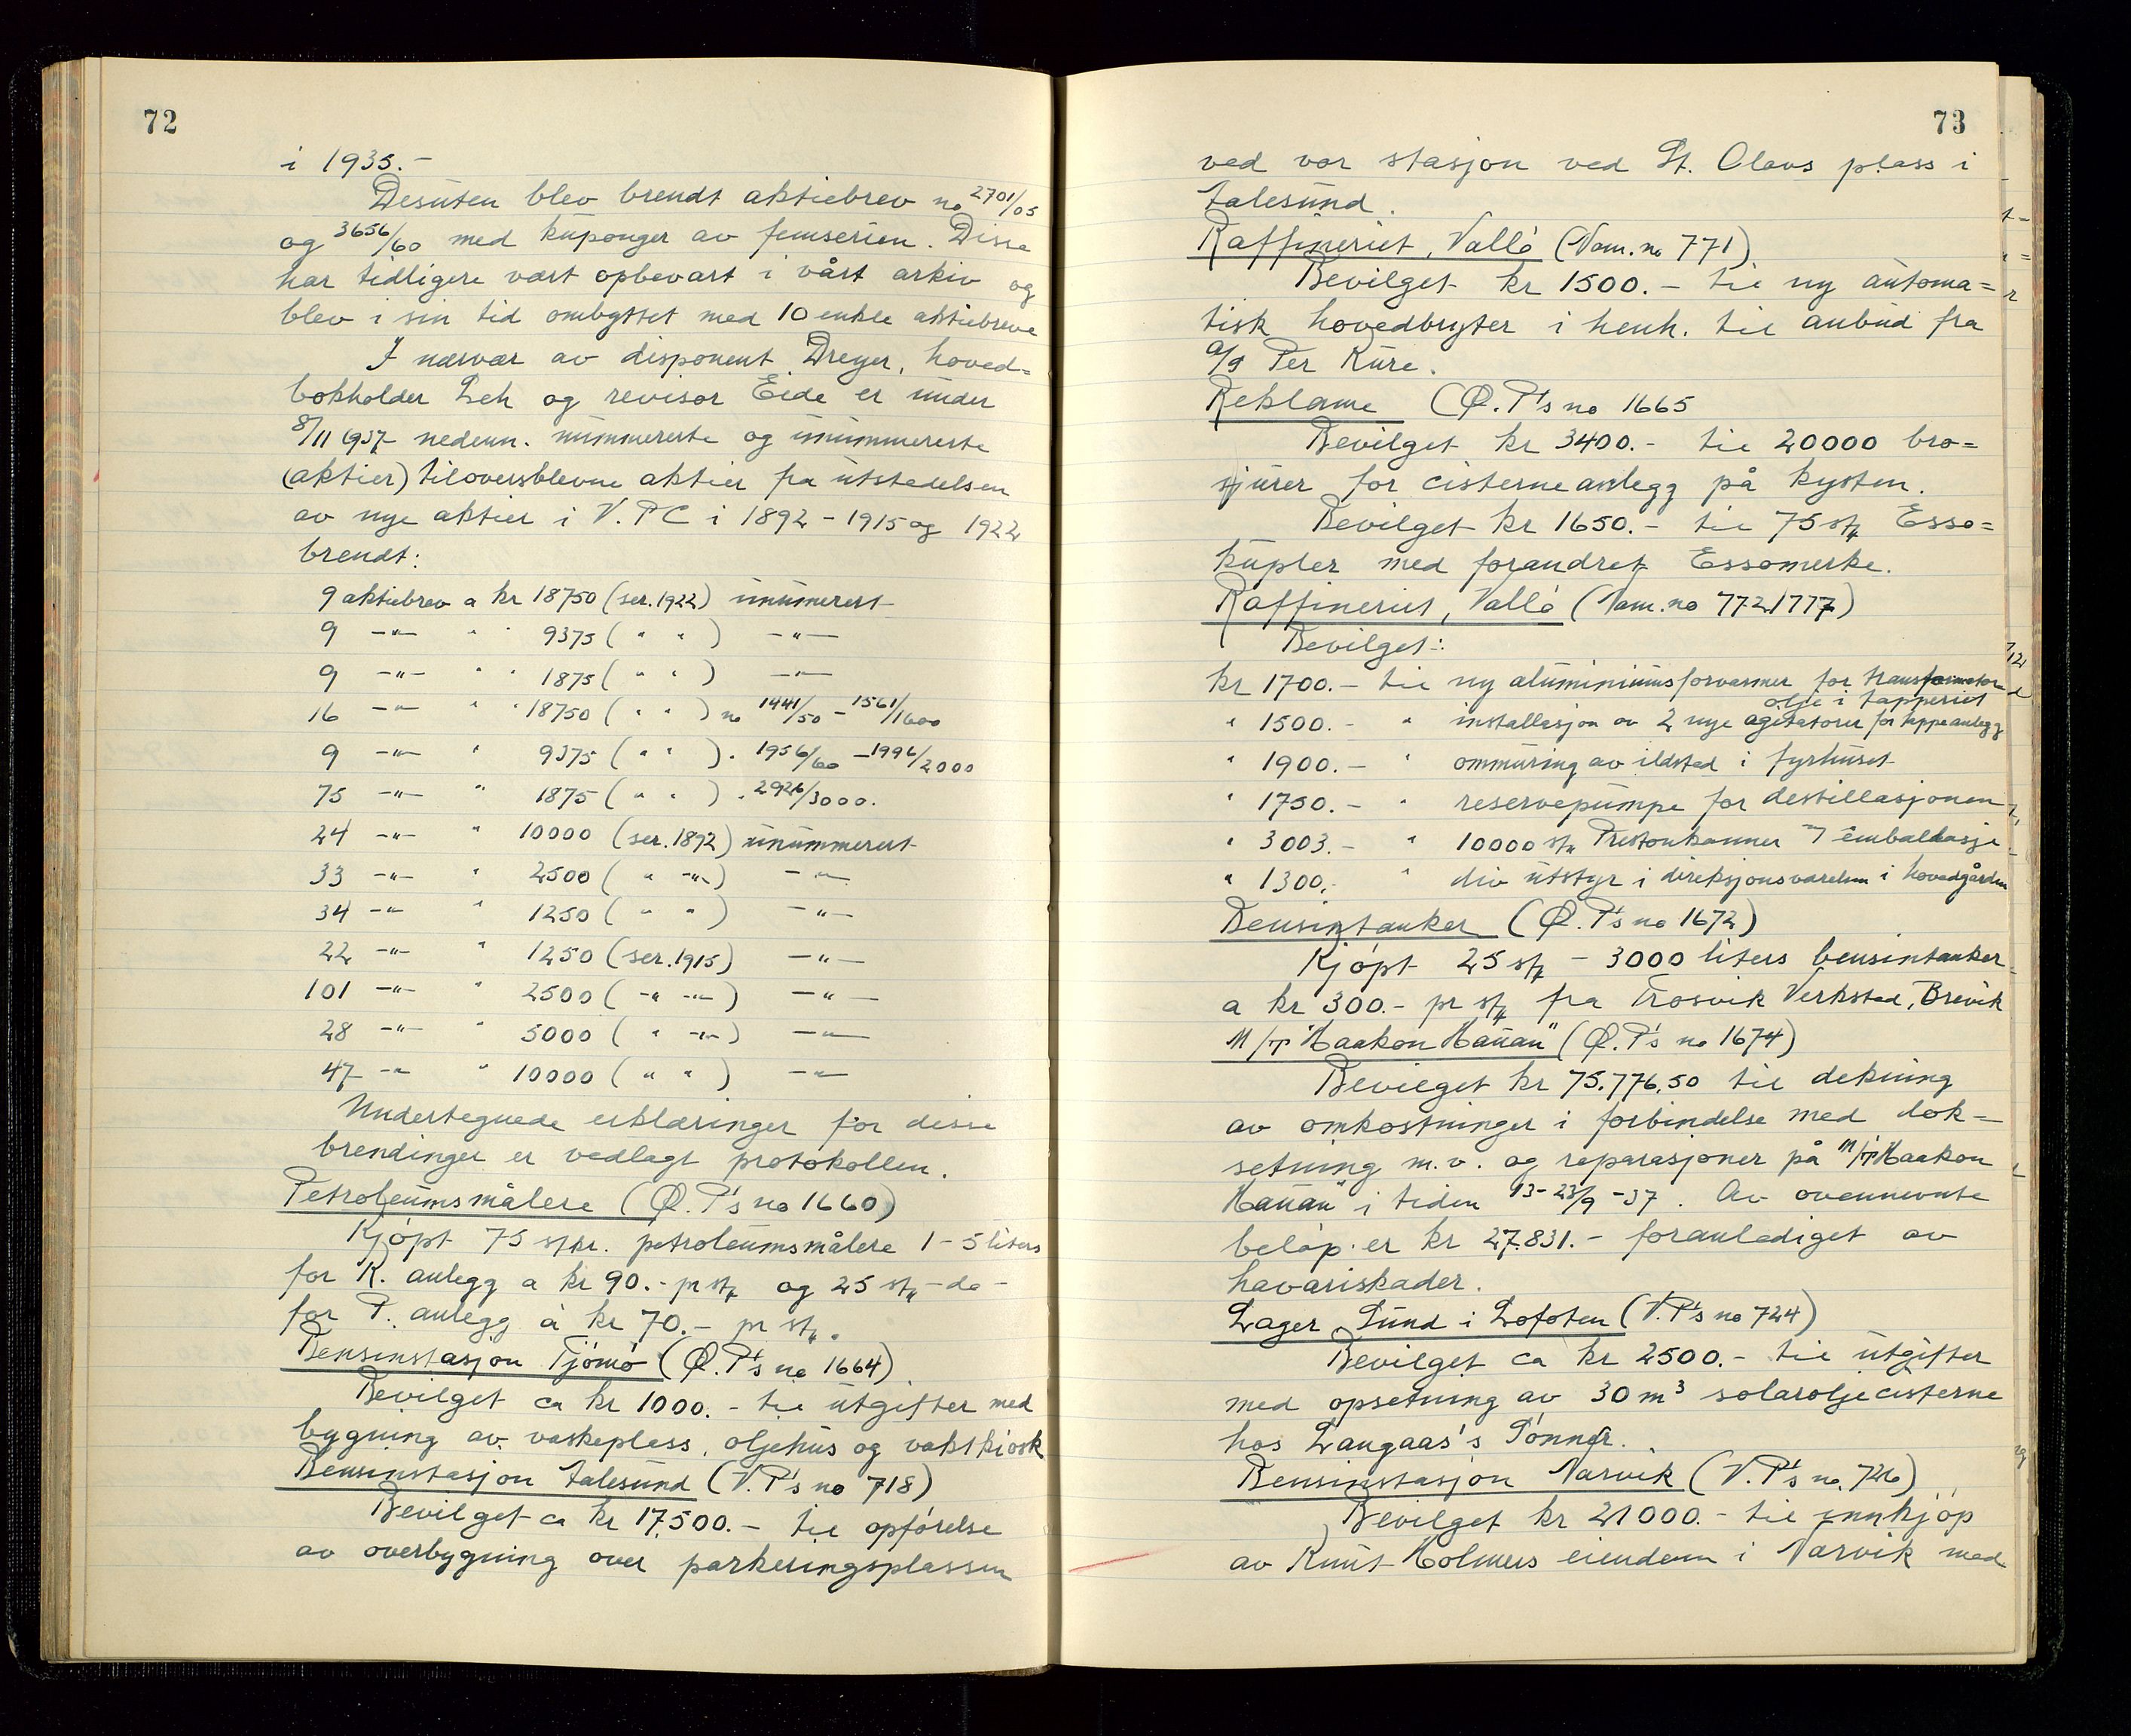 72
i 1935.-
Desuten blev brendt aktiebrev no 2701/05
og 3656/60 med kuponger av femserien. Disse
har tidligere vært opbevart i vårt arkiv og
blev i sin tid ombyttet med 10 enkle aktiebreve
I nærvær av disponent Dreyer, hoved=
bokholder Leh og revisor Eide er under
8/11 1937 nedenn. nummererte og unummererte
(aktier) tiloversblevne aktier fra utstedelsen
av nye aktier i V.P.C i 1892 - 1915 og 1922
brendt:
9 aktiebrev a kr 18750 (ser. 1922) unumerert
9 -"- " " 9375 ( " " ) -"-
9 -"- " " 1875 ( " " ) -"-
16 -"- " " 18750 ( " " ) no 1441/50 - 1561/1600
9 -"- " 9375 ( " " ) " 1956/60 - 1996/2000
75 -"- " 1875 ( " " ) " 2926/3000.
24 -"- " 10000 (ser. 1892) unummerert
33 -"- " 2500 ( " -"- ) -"-
34 -"- " 1250 ( " " ) -"-
22 -"- " 1250 (ser. 1915) -"-
101 -"- " 2500 ( -"- -"- ) -"-
28 -"- " 5000 ( " -"- ) -"-
47 -"- " 10000 ( " " ) -"-
Undertegnede erklæringer for disse
brendinger er vedlagt protokollen.
Petroleumsmålere (Ø.P's no 1660)
Kjøpt 75 stkr. petroleumsmålere 1-5 liters
for K. anlegg a kr 90.- pr stk og 25 stk -do-
for P. anlegg à kr 70.- pr stk.
Bensinstasjon Tjömö (Ø.P's no 1664)
Bevilget ca kr 1000.- til utgifter med
bygning av vaskeplass, oljehus og vaktkiosk
Bensinstasjon Aalesund (V.P's no 718)
Bevilget ca kr 17.500.- til opførelse
av overbygning over parkeringsplassen
73
ved vor stasjon ved St. Olavs plass i
Aalesund.
Raffineriet, Vallö (Nom. no 771)
Bevilget kr 1500.- til ny automa=
tisk hovedbryter i henh. til anbud fra
a/s Per Kure.
Reklame (Ø.P's no 1665
Bevilget kr 3400.- til 20000 bro=
sjurer for cisterneanlegg på kysten.
Bevilget kr 1650.- til 75 stk Esso=
kupler med forandret Essomerke.
Raffineriet, Vallö (Nom. no 772/777)
Bevilget:
kr 1700.- til ny aluminiumsforvarmer for transformator
olje i tapperiet
" 1500.- " installasjon av 2 nye agetatorer for tappeanlegg
" 1900.- " ommuring av ildsted i fyrhuset
" 1750.- " reservepumpe for destillasjonen
" 3003.- " 10000 stk Prestonkanner m/ emballasje
" 1300.- " div utstyr i direksjonsværelsen i hovedgården
Bensintanker (Ø.P's no 1672)
Kjöpt 25 stk - 3000 liters bensintanker
a kr 300.- pr stk fra Trosvik Verksted, Brevik
M/T "Haakon Hauan" (Ø.P's no 1674)
Bevilget kr 75.776,50 til dekning
av omkostninger i forbindelse med dok-
setning m.v. og reparasjoner på M/T "Haakon
Hauan" i tiden 13-23/9 -37. Av ovennevnte
beløp er kr 27.831.- foranlediget av
havariskader.
Lager Sund i Lofoten (V.P's no 724)
Bevilget ca kr 2500.- til utgifter
med opsetning av 30 m³ solaroljecisterne
hos Langaas's Sønner.
Bensinstasjon Narvik (V.P's no. 726)
Bevilget kr 21000.- til innkjøp
av Knut Holmers eiendom i Narvik med